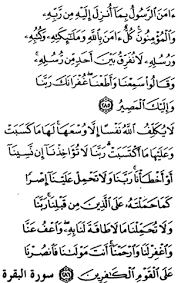 ءَامَنَ الرَّسُولُ بِمَآ أُنزِلَ إِلَيْهِ مِن رَّبِّهِ
وَالْمُؤْمِنُونَ كُلٌّ ءَامَنَ بِاللَّهِ وَمَلَٰٓئِكَتِهِ وَكُتُبِهِ
وَرُسُلِهِ لَا نُفَرِّقُ بَيْنَ أَحَدٍ مِّن رُّسُلِهِ
وَقَالُوا سَمِعْنَا وَأَطَعْنَا غُفْرَانَكَ رَبَّنَا
وَإِلَيْكَ الْمَصِيرُ ﴿٢٨٥﴾
لَا يُكَلِّفُ اللَّهُ نَفْسًا إِلَّا وُسْعَهَا لَهَا مَا كَسَبَتْ
وَعَلَيْهَا مَا اكْتَسَبَتْ رَبَّنَا لَا تُؤَاخِذْنَآ إِن نَّسِينَآ
أَوْ أَخْطَأْنَا رَبَّنَا وَلَا تَحْمِلْ عَلَيْنَآ إِصْرًا
كَمَا حَمَلْتَهُ عَلَى الَّذِينَ مِن قَبْلِنَا رَبَّنَا
وَلَا تُحَمِّلْنَا مَا لَا طَاقَةَ لَنَا بِهِ وَاعْفُ عَنَّا
وَاغْفِرْ لَنَا وَارْحَمْنَآ أَنتَ مَوْلَىٰنَا فَانصُرْنَا
عَلَى الْقَوْمِ الْكَٰفِرِينَ ﴿٢٨٦﴾ سورة البقرة